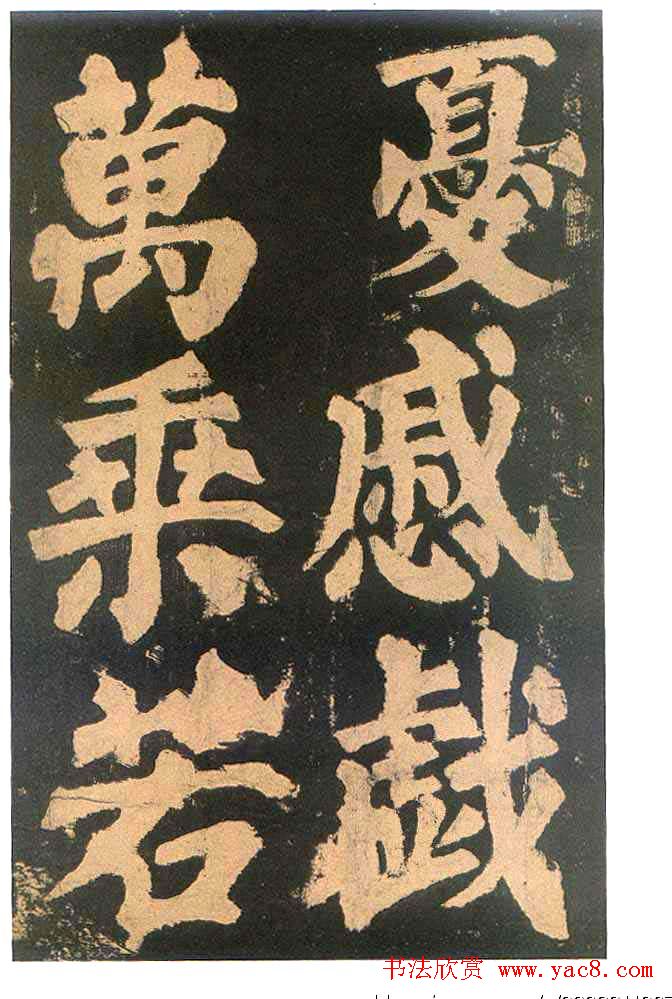 憂慼戯
萬乗若
书法欣赏 www.yac8.com